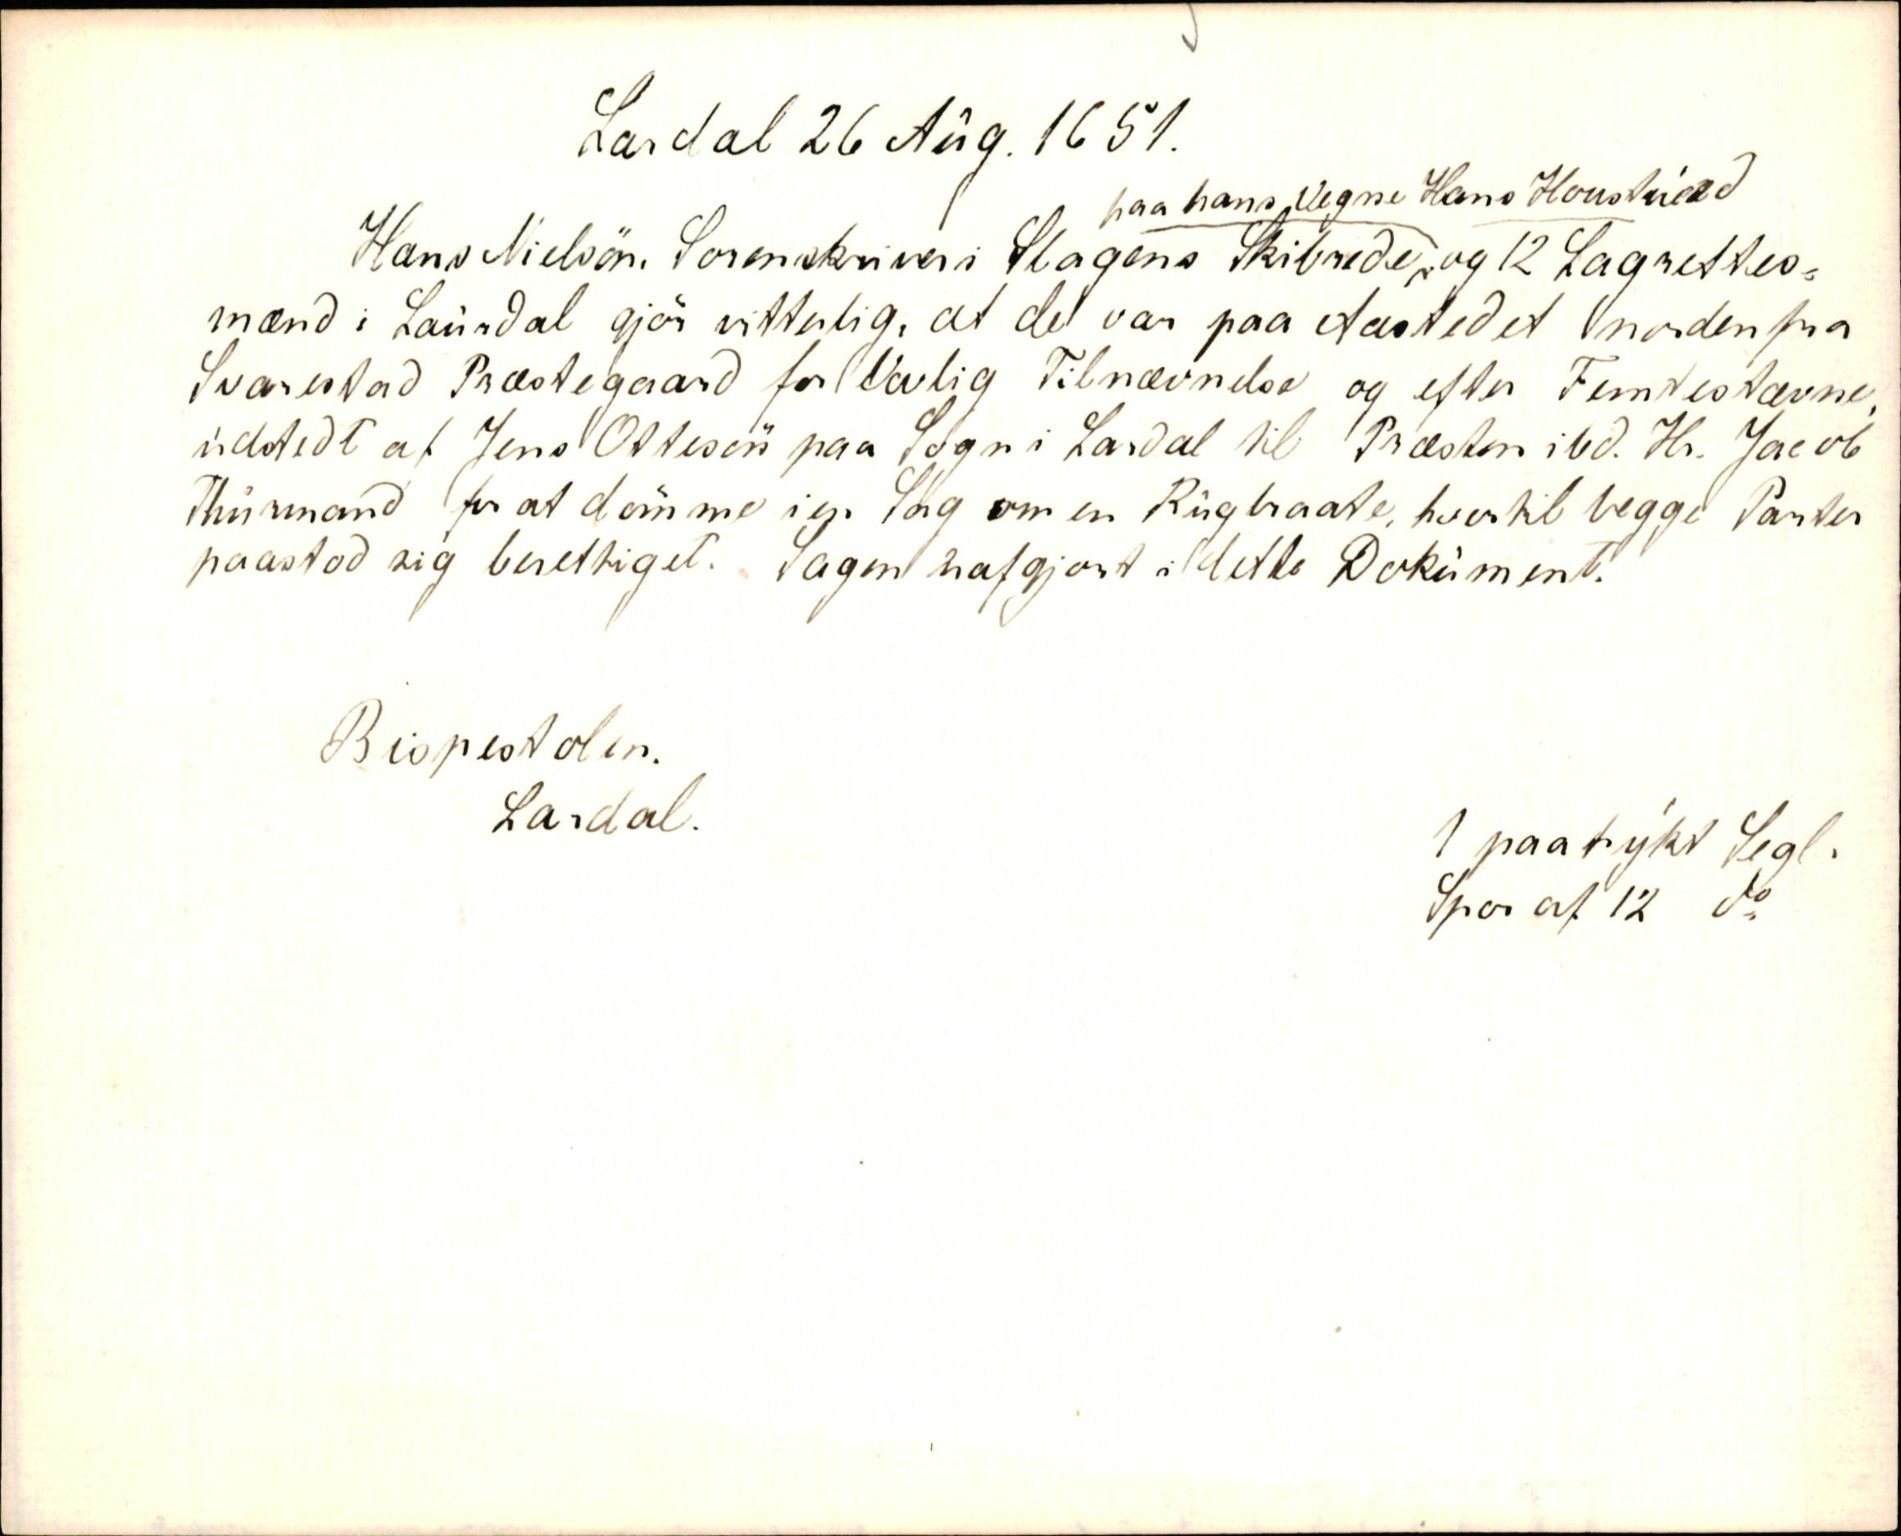 Lardal 26 Aug. 1651.
paa hans Vegne Hans Houstved
Hans Nielsön, Sorenskriver i Slagens Skibrede, og 12 Lagrettes-
mænd i Laurdal gjör vitterlig, at de var paa Aastedet norden fra
Svarestad Præstegaard for lovlig Tilnævnelse og efter Femtestævne,
udstedt af Jens Ottesön paa Sogn i Lardal til Præsten ibd. Hr. Jacob
Thurmand for at dömme i en Sag om en Rugbraate, hvortil begge Parter
paastod sig berettiget. Sagen uafgjort i dette Dokument.
Bispestolen.
Lardal.
1 paatrykt Segl.
Spor af 12 do